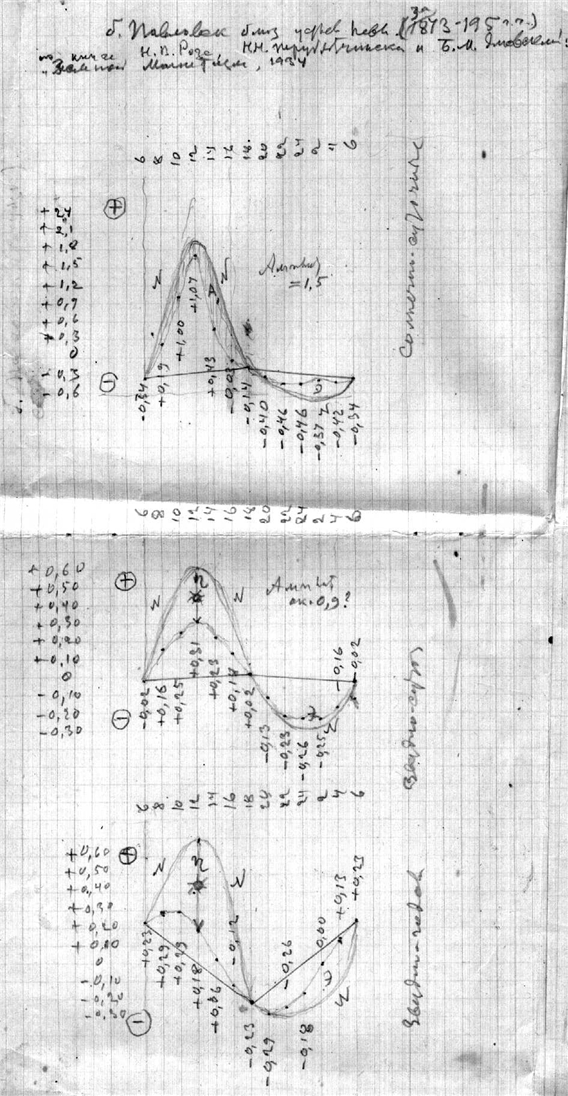 б. Павловск близ устья Невы (за 1873-195 г.г.)
по книге Н.В. Розе, Н.Н. Трубятчинский и Б.М. Яновский:
"Земной Магнетизм", 1934
6 8 10 12 14 16 18 20 22 24 2 4 6
+
+ 2,4
+ 2,1
+ 1,8
+ 1,5
+ 1,2
+ 0,9
+ 0,6
+ 0,3
0
- 0,3
- 0,6
−
Амплит
= 1,5
-0,34 +0,19 +1,00 +1,07 +0,43 -0,02 -0,14 -0,40 -0,46 -0,46 -0,37 -0,42 -0,34
Солнечно-суточные
6 8 10 12 14 16 18 20 22 24 2 4 6
+
+ 0,60
+ 0,50
+ 0,40
+ 0,30
+ 0,20
+ 0,10
0
- 0,10
- 0,20
- 0,30
−
Амплит
ок. 0,9?
-0,02 +0,16 +0,25 +0,31 +0,23 +0,02 -0,13 -0,23 -0,26 -0,25 -0,16 0,02
Звездно-суточн
6 8 10 12 14 16 18 20 22 24 2 4 6
+
+0,60
+0,50
+0,40
+0,30
+0,20
0
-0,10
-0,20
-0,30
−
+0,23 +0,29 +0,29 +0,18 +0,06 -0,12 -0,23 -0,29 -0,26 -0,18 0,00 +0,13 +0,23
Звездно-годов